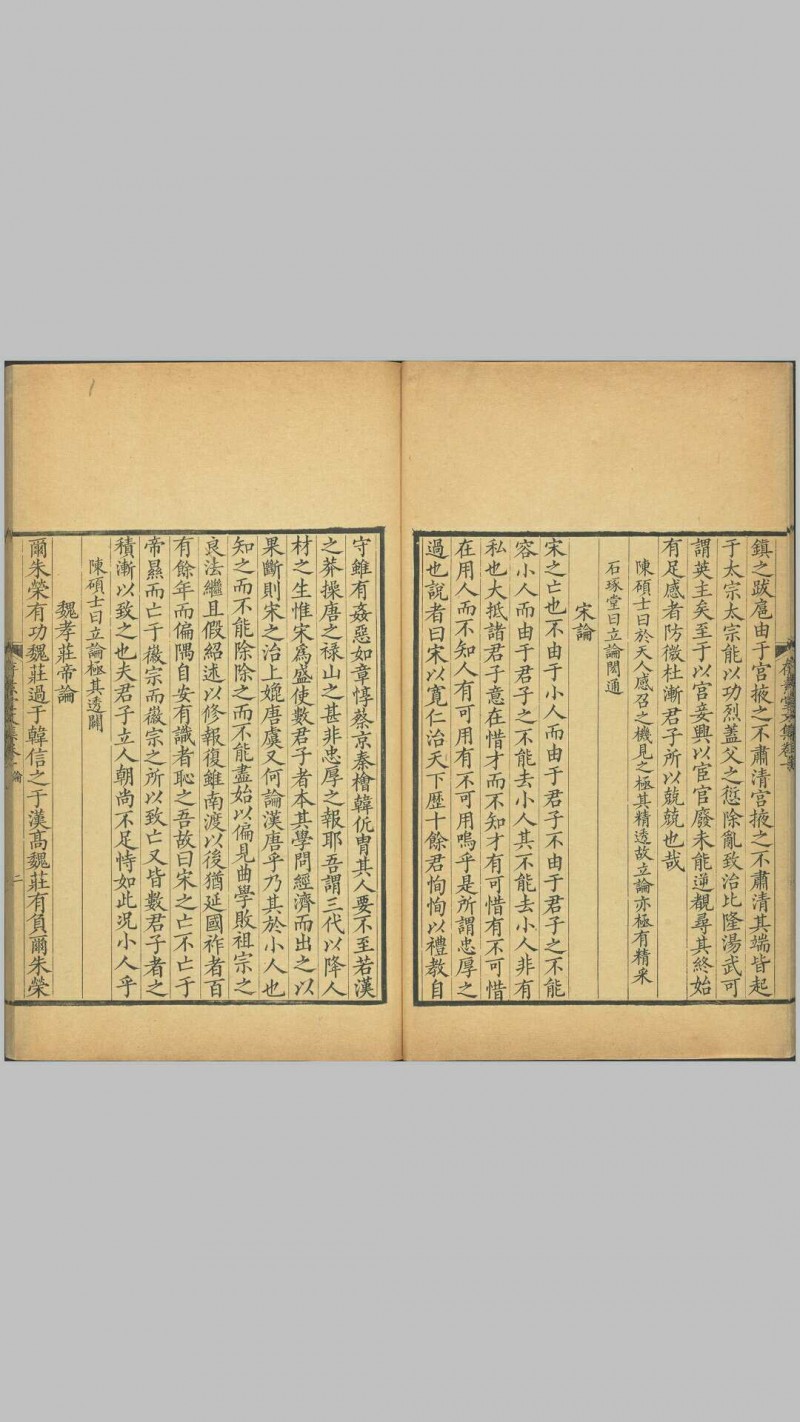 鎮之跋扈由于宮掖之不肅清宮掖之不肅清其端皆起
于太宗太宗能以功烈蓋父之愆除亂致治比隆湯武可
謂英主矣至于以官妾興以宦官廢未能逆覩尋其終始
有足感者防微杜漸君子所以兢兢也哉
陳碩士曰於天人感召之機見之極其精透故立論亦極有精采
石琢堂曰立論閎通
宋論
宋之亡也不由于小人而由于君子不由于君子之不能
容小人而由于君子之不能去小人其不能去小人非有
私也大抵諸君子意在惜才而不知才有可惜有不可惜
在用人而不知人有可用有不可用嗚乎是所謂忠厚之
過也說者曰宋以寬仁治天下歷十餘君恂恂以禮教自
守雖有姦惡如章惇蔡京秦檜韓侂冑其人要不至若漢
之莽操唐之祿山之甚非忠厚之報耶吾謂三代以降人
材之生惟宋為盛使數君子者本其學問經濟而出之以
果斷則宋之治上媲唐虞又何論漢唐乎乃其於小人也
知之而不能除除之而不能盡始以偏見曲學敗祖宗之
良法繼且假紹述以修報復雖南渡以後猶延國祚者百
有餘年而偏隅自安有識者恥之吾故曰宋之亡不亡于
帝㬎而亡于徽宗而徽宗之所以致亡又皆數君子者之
積漸以致之也夫君子立人朝尚不足恃如此况小人乎
陳碩士曰立論極其透闢
魏孝莊帝論
爾朱榮有功魏莊過于韓信之于漢高魏莊有負爾朱榮
論
二